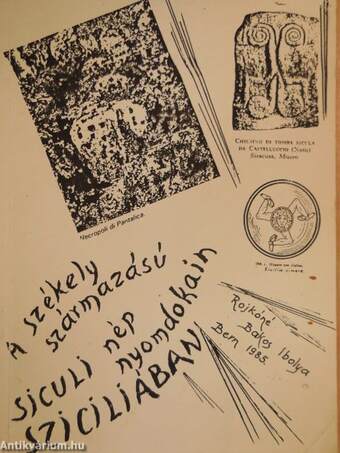 Necropoli di Pantalica
CHIUSINO DI TOMBA SICULA
DA CASTELLUCCIO (NOTO)
SIRACUSA, MUSEO
Sicilia
A SZÉKELY
SZÁRMAZÁSÚ
SICULI NÉP
NYOMDOKAIN
SZICILIÁBAN
Rojkóne
Bakos Ibolya
Bern 1985.
Antikvarium.hu